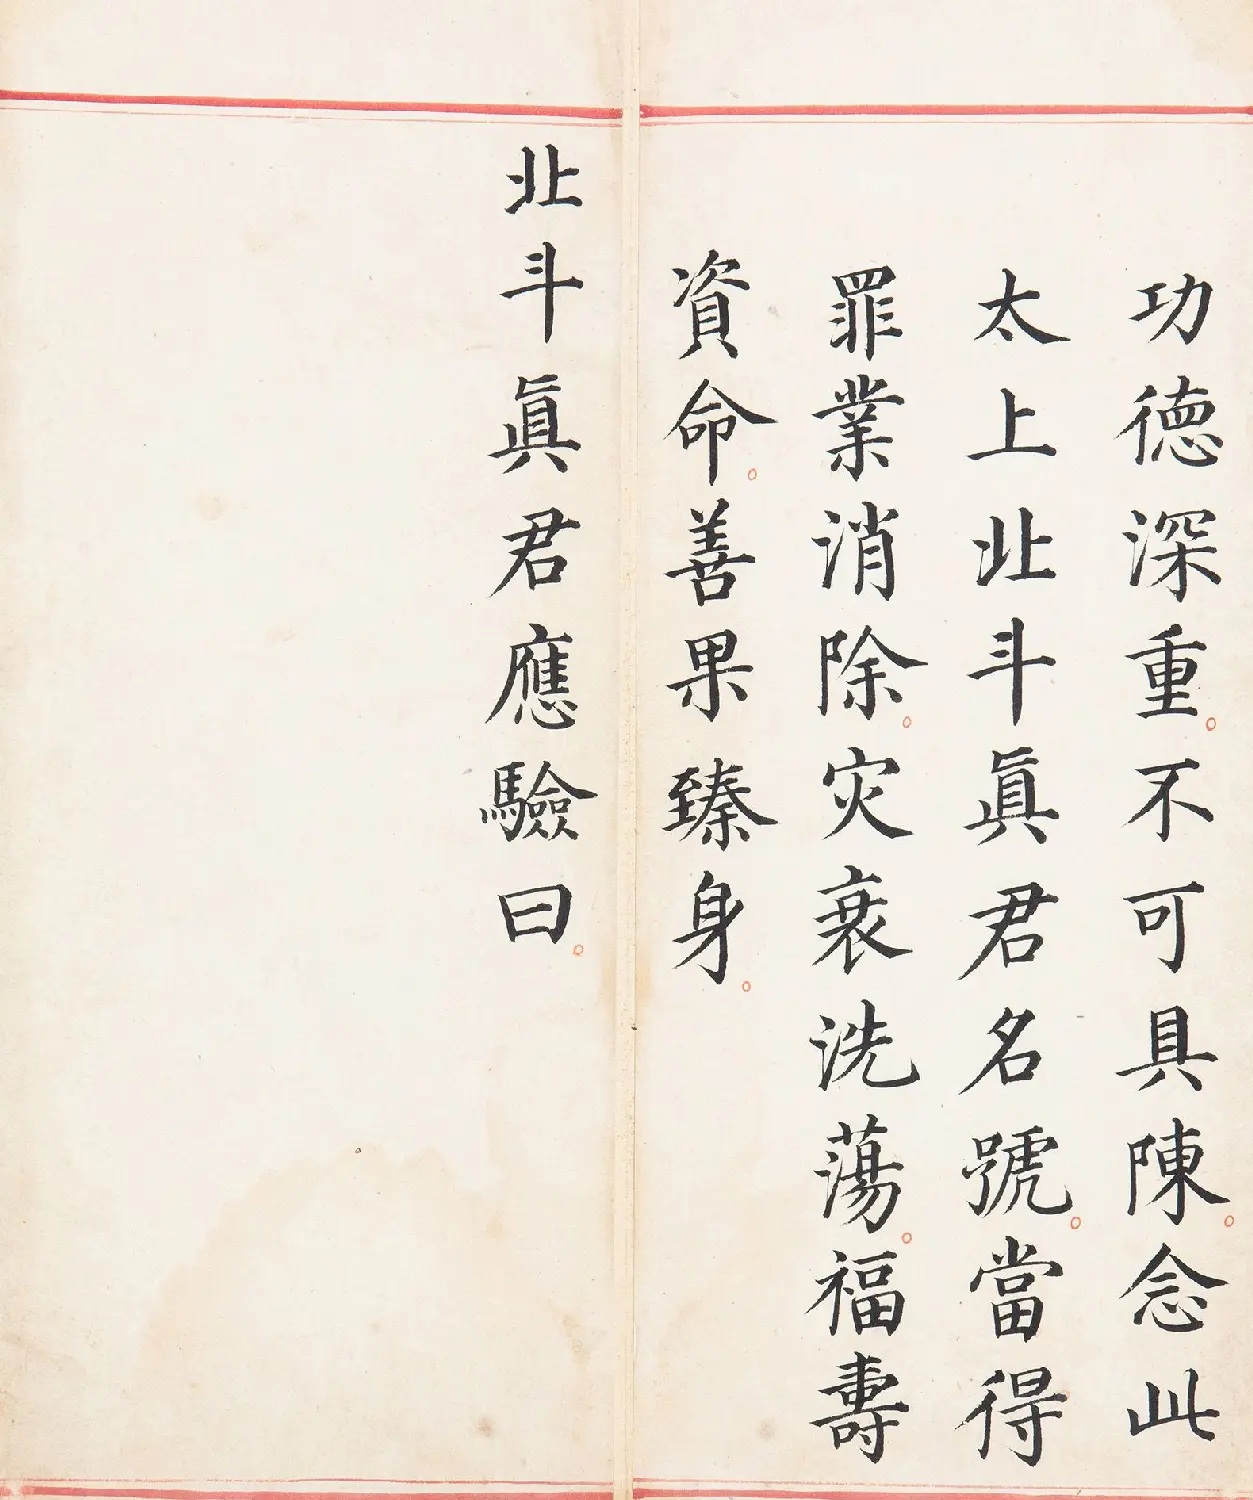 功德深重。不可具陳。念此
太上北斗眞君名號。當得
罪業消除。灾衰洗蕩。福壽
資命。善果臻身。
北斗眞君應驗曰。